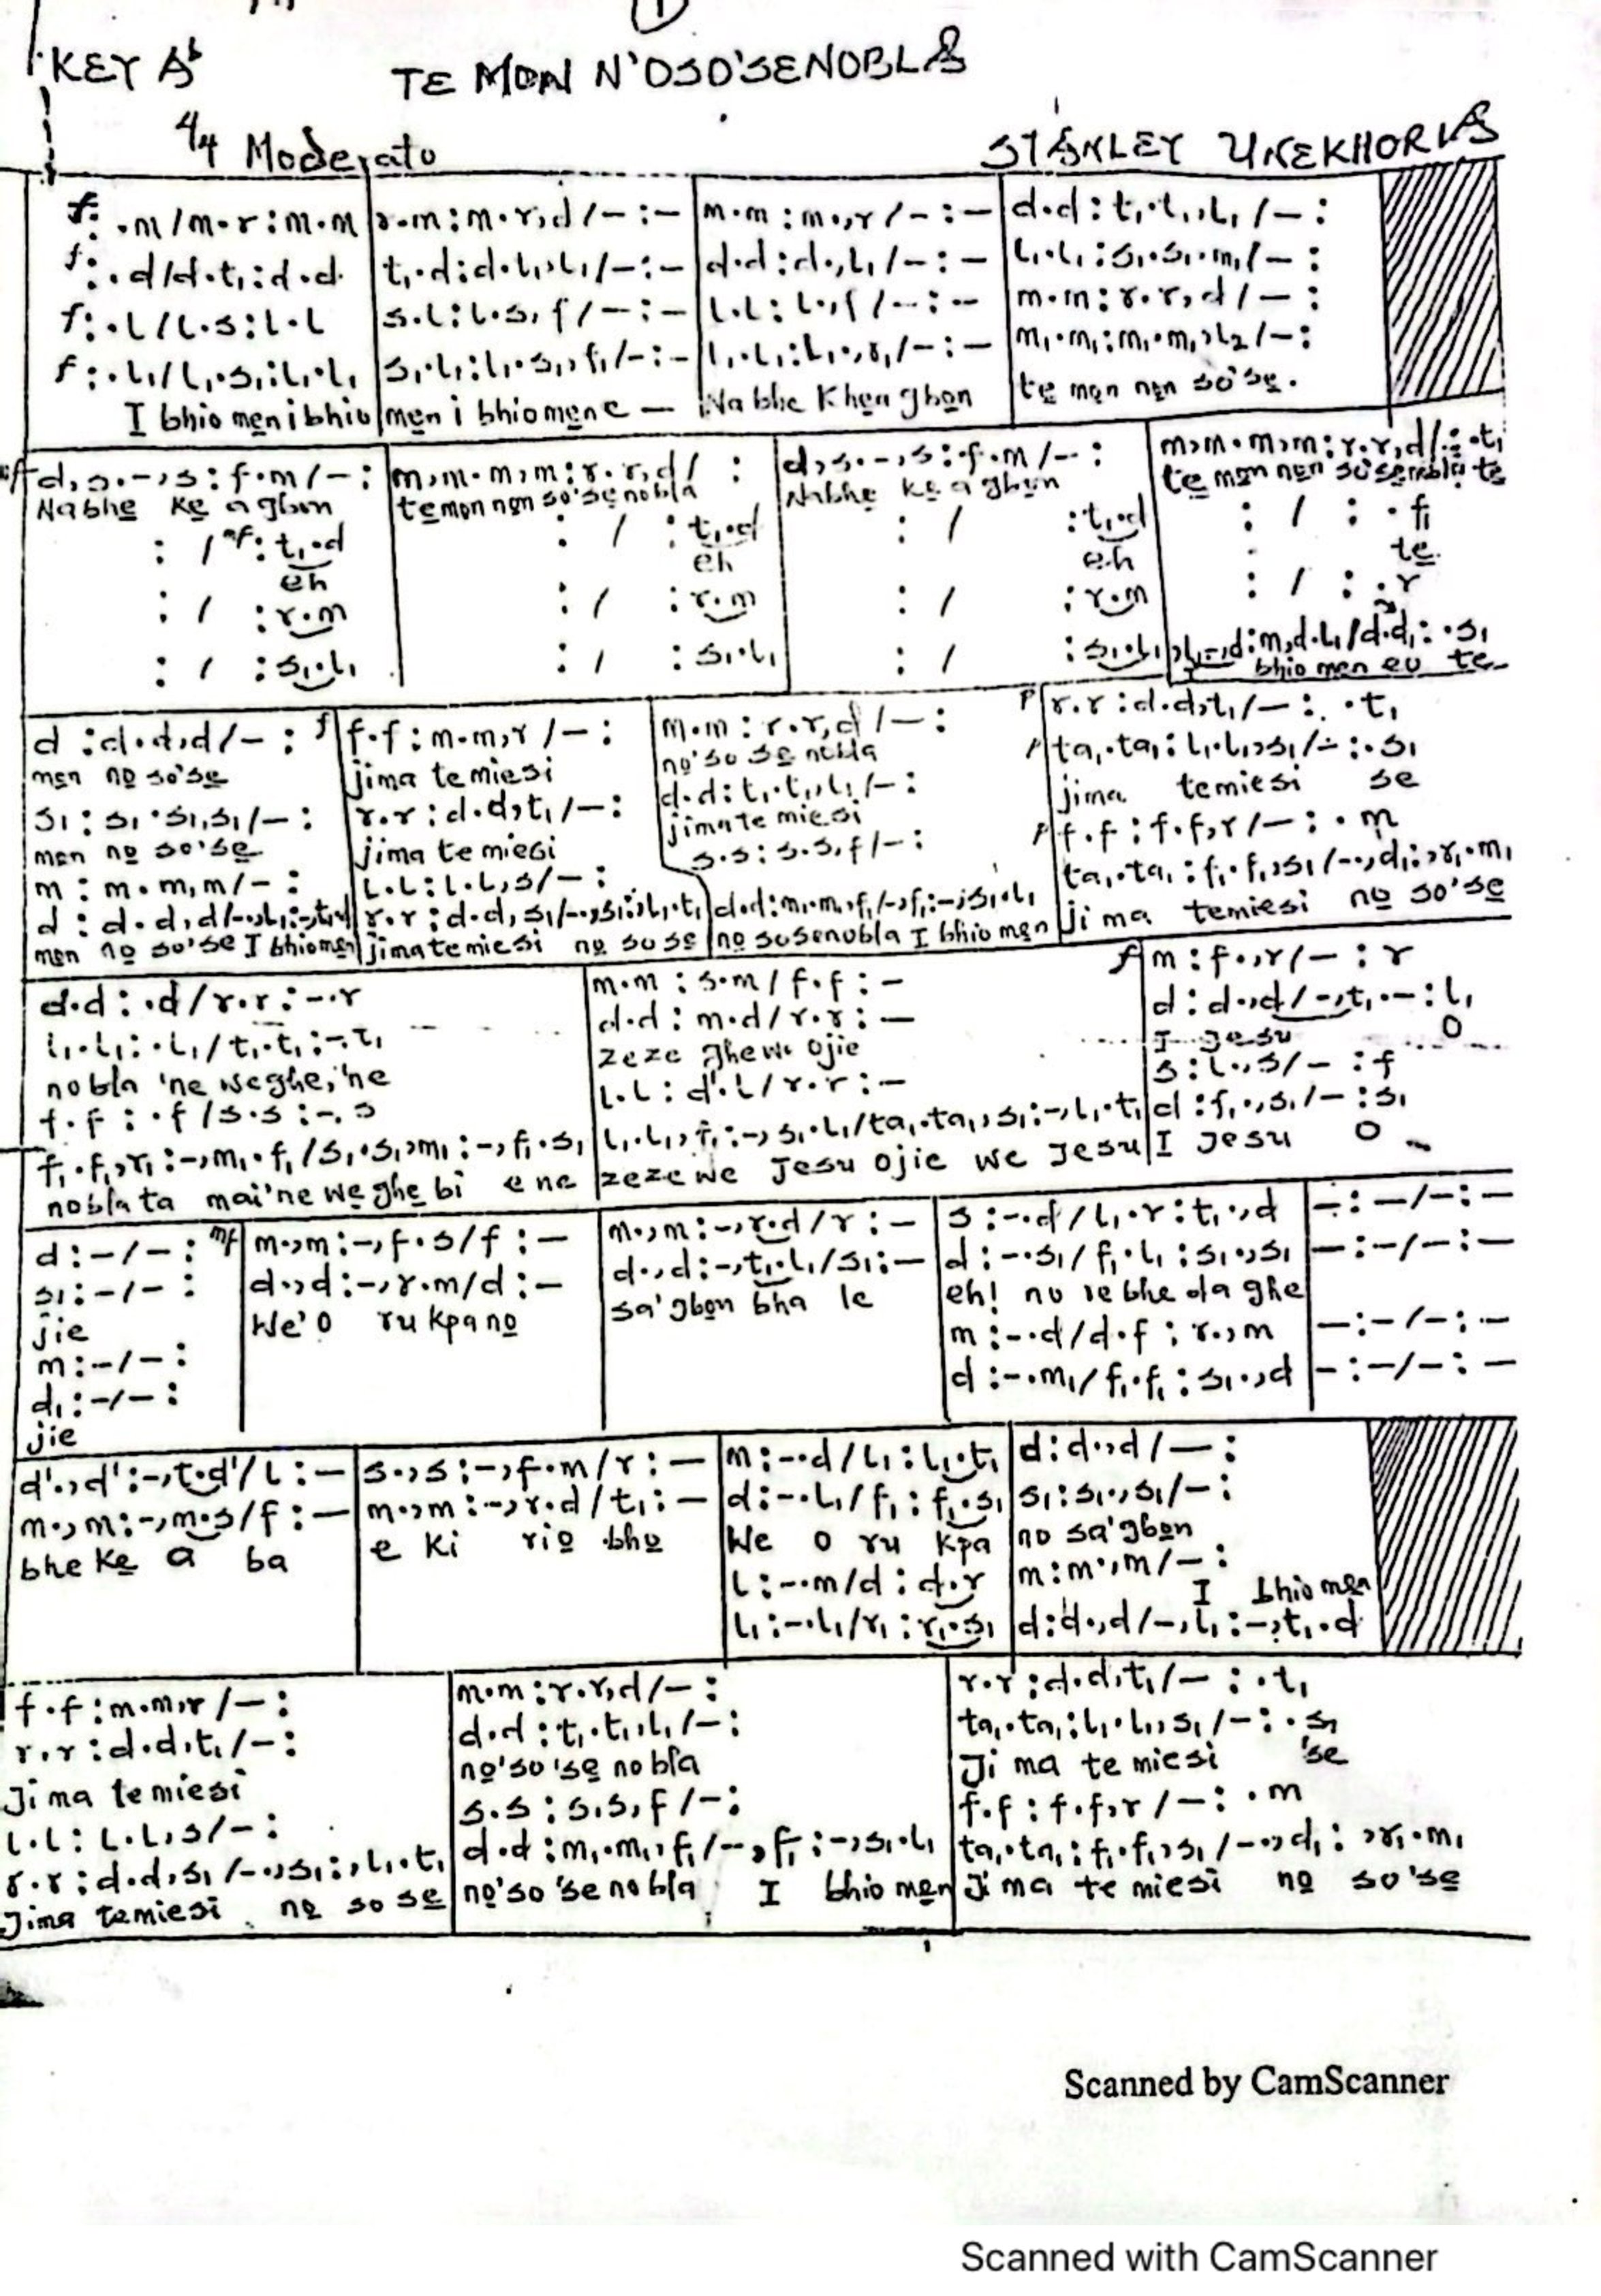 1
KEY Ab
TE MON N'OSO'SENOBLA
4/4 Moderato
STANLEY UKEKHORIA
f: .m/m.r:m.m | r.m:m.r,d/-:- | m.m:m.,r/-:- | d.d:t₁.t₁,l₁/-:
f: .d/d.t₁:d.d | t₁.d:d.l₁,l₁/-:- | d.d:d.,l₁/-:- | l₁.l₁:s₁.s₁.m₁/-:
f: .l/l.s:l.l | s.l:l.s,f/-:- | l.l:l.,f/-:- | m.m:r.r,d/-:
f: .l₁/l₁.s₁:l₁.l₁ | s₁.l₁:l₁.s₁,f₁/-:- | l₁.l₁:l₁.,r₁/-:- | m₁.m₁:m₁.m₁,l₂/-:
I bhio men i bhio | men i bhiomen e — | Na bhe Khen gbon | te mon non so'se.
d,s.-,s:f.m/-: | m,m.m,m:r.r,d/ : | d,s.-,s:f.m/-: | m,m.m,m:r.r,d/:.t₁
Nabhe ke agbon | temon non so'senobla | Nabhe ke agbon | te mon non so'senobla te
: / mf: t₁.d | : / : t₁.d | : / : t₁.d | : / : .f₁
eh | eh | eh | te
: / : r.m | : / : r.m | : / : r.m | : / : .r
: / : s₁.l₁ | : / : s₁.l₁ | : / : s₁.l₁ | ,l₁-,d:m,d.l₁/d.d₁: .s₁
bhio men eo te
d :d.d,d/-: | f f.f:m.m,r/-: | m.m:r.r,d/-: | p r.r:d.d,t₁/-: .t₁
men no so'se | jima temiesi | no'so se nobla | p ta₁.ta₁:l₁.l₁,s₁/-:.s₁
s₁:s₁.s₁,s₁/-: | r.r:d.d,t₁/-: | d.d:t₁.t₁,l₁/-: | jima temiesi se
men no so'se | jima temiesi | jima te miesi | p f.f:f.f,r/-: .m
m:m.m,m/-: | l.l:l.l,s/-: | s.s:s.s,f/-: | ta₁.ta₁:f₁.f₁,s₁/-.,d₁:,r₁.m₁
d:d.d,d/-.,l₁:-,t₁.d | r.r:d.d,s₁/-.,s₁:,l₁.t₁ | d.d:m₁.m₁,f₁/-,f₁:-,s₁.l₁ | ji ma temiesi no so'se
men no so'se I bhiomen | jimatemiesi no so se | no sosenobla I bhio men
d.d: .d/r.r:-.r | m.m:s.m/f.f:- | f m:f.,r/-:r
l₁.l₁: .l₁/t₁.t₁:-.t₁ | d.d:m.d/r.r:- | d:d.,d/-,t₁.-:l₁
nobla 'ne weghe,'ne | zeze ghewe ojie | I Jesu O
f.f: .f/s.s:-.s | l.l:d'.l/r.r:- | s:l.,s/-:f
f₁.f₁,r₁:-,m₁.f₁/s₁.s₁,m₁:-,f₁.s₁ | l₁.l₁,f₁:-,s₁.l₁/ta₁.ta₁,s₁:-,l₁.t₁ | d:f₁.,s₁/-:s₁
nobla ta mai'ne we ghe bi e ne | zezewe Jesu ojie we Jesu | I Jesu O
d:-/-: | mf m.,m:-,f.s/f:- | m.,m:-,r.d/r:- | s:-.d/l₁.r:t₁.,d | -:-/-:-
s₁:-/-: | d.,d:-,r.m/d:- | d.,d:-,t₁.l₁/s₁:- | d:-.s₁/f₁.l₁:s₁.,s₁ | -:-/-:-
jie | We'o ru kpa no | sa'gbon bha le | eh! no re bhe da ghe
m:-/-: | m:-.d/d.f:r.,m | -:-/-:-
d₁:-/-: | d:-.m₁/f₁.f₁:s₁.,d | -:-/-:-
jie
d'.,d':-,t.d'/l:- | s.,s:-,f.m/r:- | m:-.d/l₁:l₁.t₁ | d:d.,d/-:
m.,m:-,m.s/f:- | m.,m:-,r.d/t₁:- | d:-.l₁/f₁:f₁.s₁ | s₁:s₁.,s₁/-:
bhe ke a ba | e ki rio bho | We o ru kpa | no sa'gbon
l:-.m/d:d.r | m:m.,m/-:
I bhio men
l₁:-.l₁/r₁:r₁.s₁ | d:d.,d/-,l₁:-,t₁.d
f.f:m.m,r/-: | m.m:r.r,d/-: | r.r:d.d,t₁/-: .t₁
r.r:d.d,t₁/-: | d.d:t₁.t₁,l₁/-: | ta₁.ta₁:l₁.l₁,s₁/-: .s₁
Ji ma te miesi | no'so'se nobla | Ji ma te miesi 'se
l.l:l.l,s/-: | s.s:s.s,f/-: | f.f:f.f,r/-: .m
r.r:d.d,s₁/-.,s₁:,l₁.t₁ | d.d:m₁.m₁,f₁/-.,f₁:-,s₁.l₁ | ta₁.ta₁:f₁.f₁,s₁/-.,d₁:,r₁.m₁
Jima temiesi no so se | no'so'se nobla I bhio men | Ji ma te miesi no so'se
Scanned by CamScanner
Scanned with CamScanner